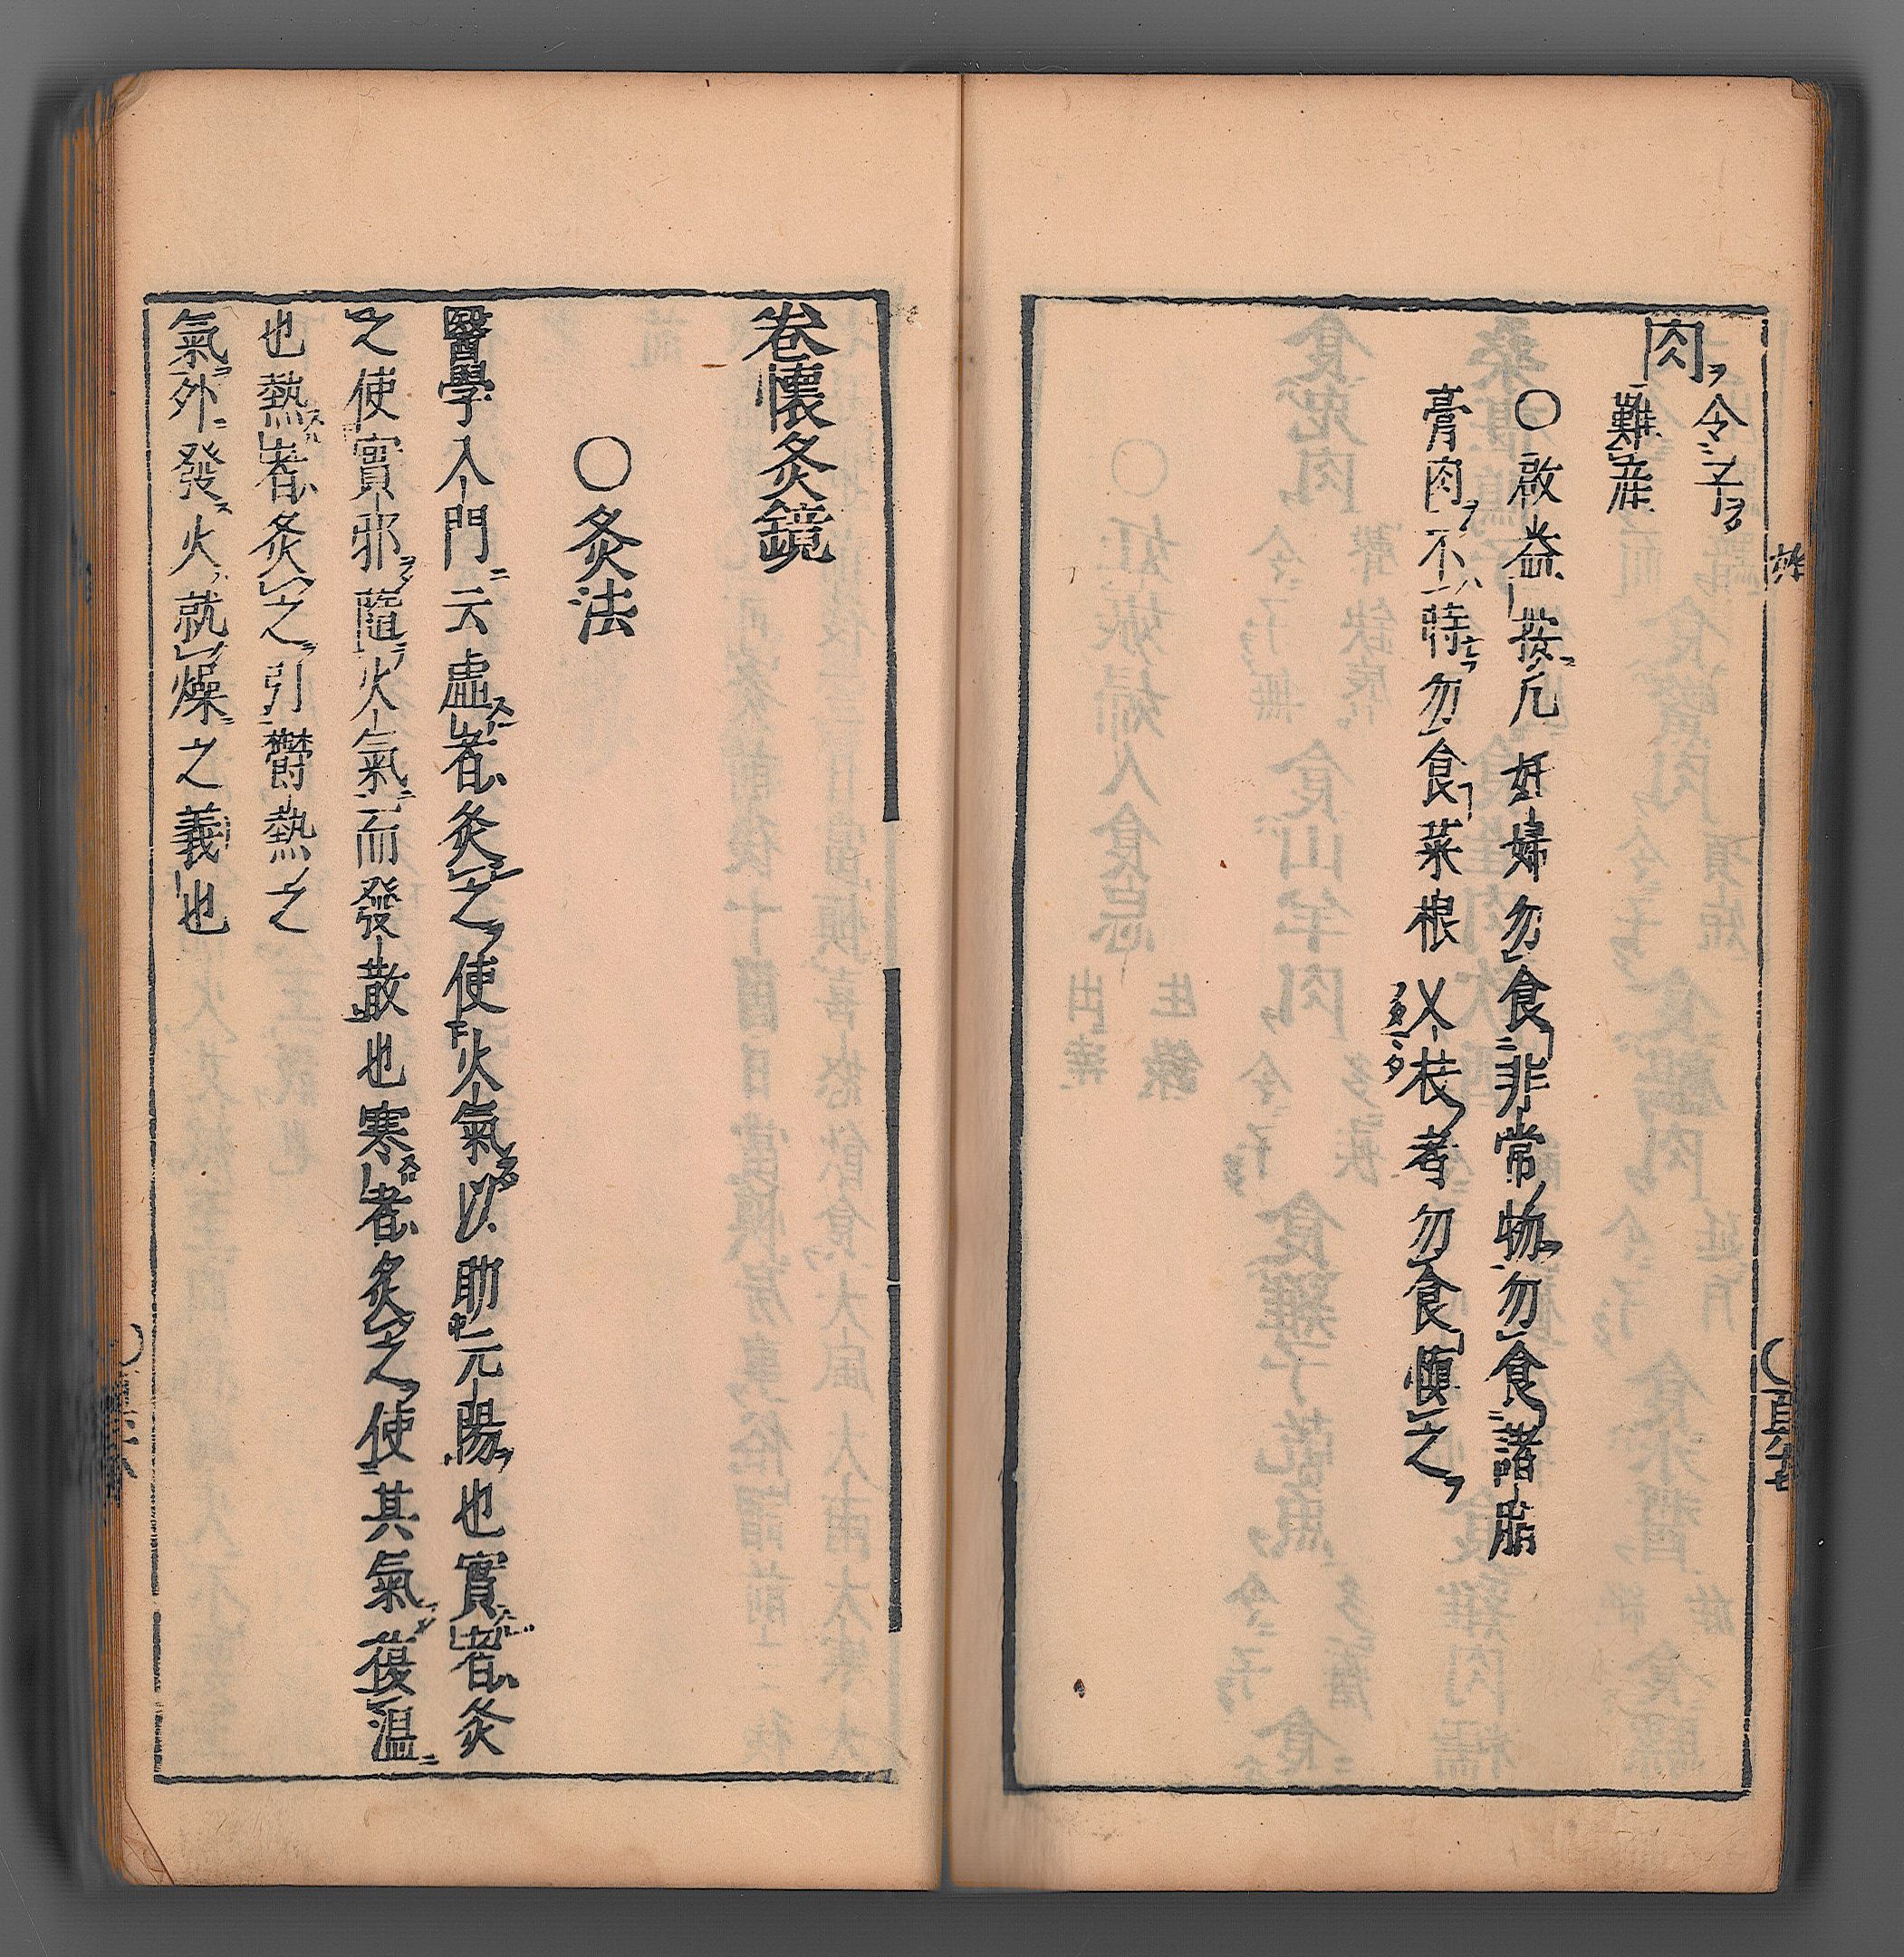 肉 令子
難産
○啟益按凡妊婦勿食非常物勿食諸脂
膏肉不時勿食菜根乂枝者勿食慎之
卷懷灸鏡
○灸法
醫學入門云虛者灸之使火氣以助元陽也實者灸
之使實邪隨火氣而發散也寒者灸之使其氣復温
也熱者灸之引鬱熱之
氣外發火就燥之義也